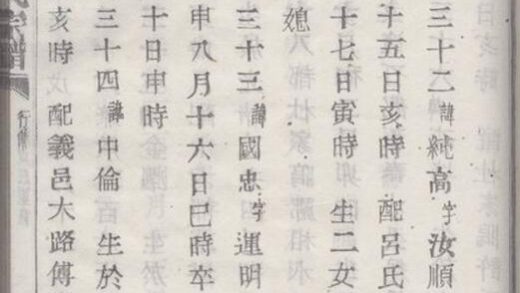 三十二諱純高字汝順
十五日亥時 配呂氏
十七日寅時 生二女
媳
三十三諱國忠字運明
申八月十六日巳時卒
十日申時
三十四諱中倫 生於
亥時 配義邑大路傅